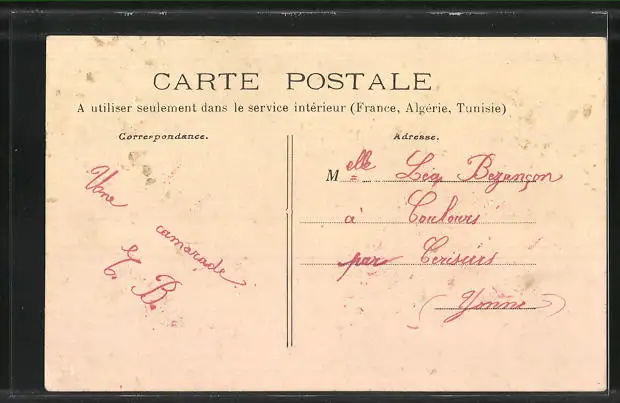 CARTE POSTALE
A utiliser seulement dans le service intérieur (France, Algérie, Tunisie)
Correspondance.
Une
camarade
B.
Adresse.
Melle Léa Bezançon
à Coulours
par Cerisiers
(Yonne)